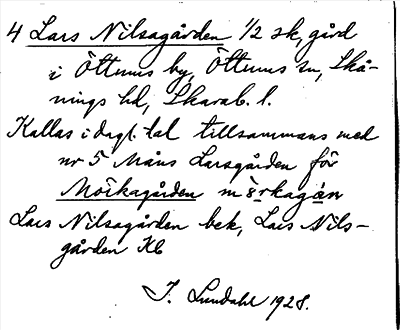 4 Lars Nilsagården 1/2 sk, gård
i Öttums by, Öttums sn, Skå-
nings hd, Skarab. l.
Kallas i dagl. tal tillsammans med
nr 5 Måns Larsgården för
Mörkagården m
Lars Nilsagården bek, Lars Nils-
gården Kb
J. Lundahl 1928.